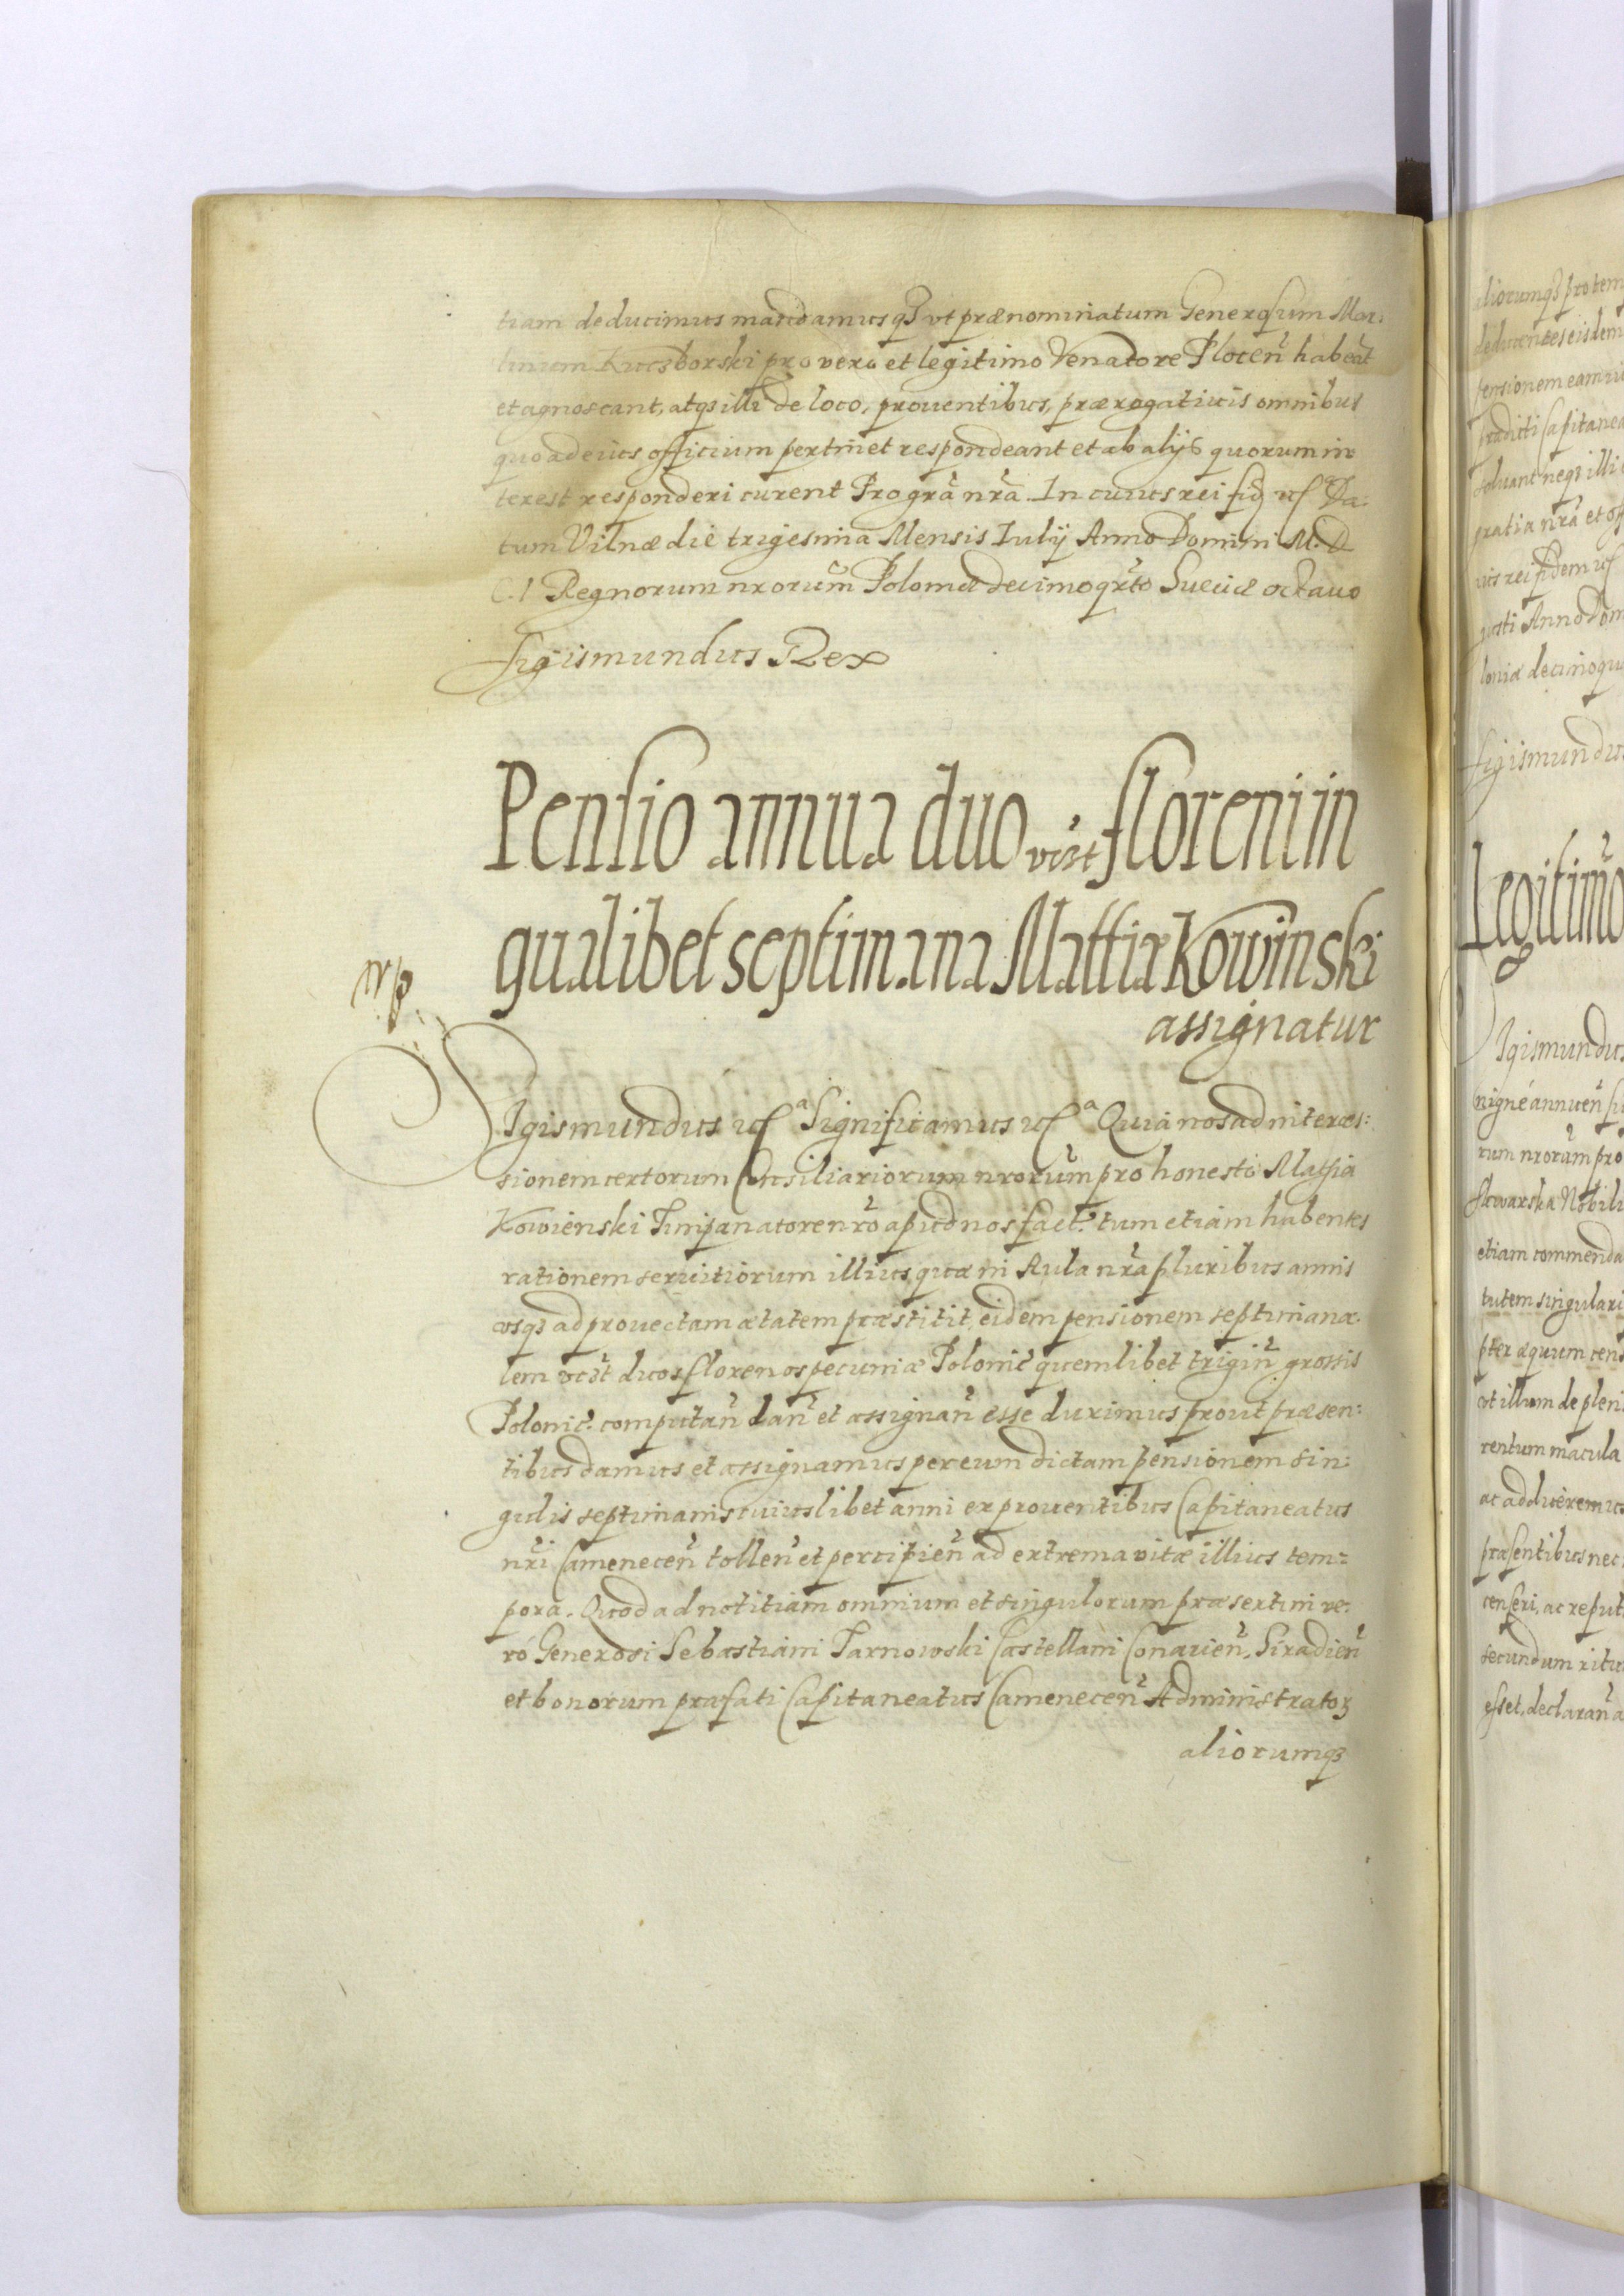 tiam deducimus mandamusqꝫ vt prænominatum Generosum Mar:
tinum Kuczborski pro vero et legitimo Venatore Plocen̄ habeāt
et agnoscant, atqꝫ illi de loco, prouentibus, prærogatiuis omnibus
quo ad eius officium pertinet respondeant et ab alijs quorum in
terest responderi curent Pro grā nrā. In cuius rei fid ꝛc Da:
tum Vilnæ die trigesima Mensis Iulij Anno Domini M.D
C.I Regnorum nrorum̄ Poloniæ decimoqrto Sueciæ octauo
Sigismundus Rex
Pensio annua duo vizt floreni in
qualibet septimana Mattiæ Kowinski
assignatur
Sigismundus ꝛcª Significamus ꝛcª Quia nos ad interces:
sionem certorum Consiliariorum nrorum̄ pro honesto Mathia
Kowienski Timpanatore nr̄o apud nos fact. tum etiam habentes
rationem seruitiorum illius quæ in Aula nrā pluribus annis
vsqꝫ ad prouectam ætatem præstitit, eidem pensionem septimana:
lem vizt duos florenos pecuniæ Polonic̄ quemlibet trigin̄ grossis
Polonic̄. computan̄ dan̄ et assignan̄ esse duximus prout præsen:
tibus damus et assignamus per eum dictam pensionem sin:
gulis septimanis cuiuslibet anni ex prouentibus Capitaneatus
nrī Camenecen̄ tollen̄ et percipien̄ ad extrema vitæ illius tem=
pora. Quod ad notitiam omnium et singulorum præsertim ve:
ró Generosi Sebastiani Tarnowski Castellani Conarien̄. Siradien̄
et bonorum præfati Capitaneatus Camenecen̄ Administratoꝝ
aliorumqꝫ
aliorumqꝫ pro tem
deducentes eisdem
pensionem eam
prædicti Capitanea
soluant neqꝫ illi
gratia nrā et
ius rei fidem ꝛc
gusti Anno Dom
loniæ decimoqu
Sigismundus
Legitimo
Sigismundus
nigné annuen̄
rum nrorum̄ pro
skowarska Nobili
etiam commenda
tutem singulari
pter æquum cens
vt illum de pleni
rentum macula
ac adduceremus
præsentibus nec
censeri, ac reput
secundum ritu
esset, declaran̄ a